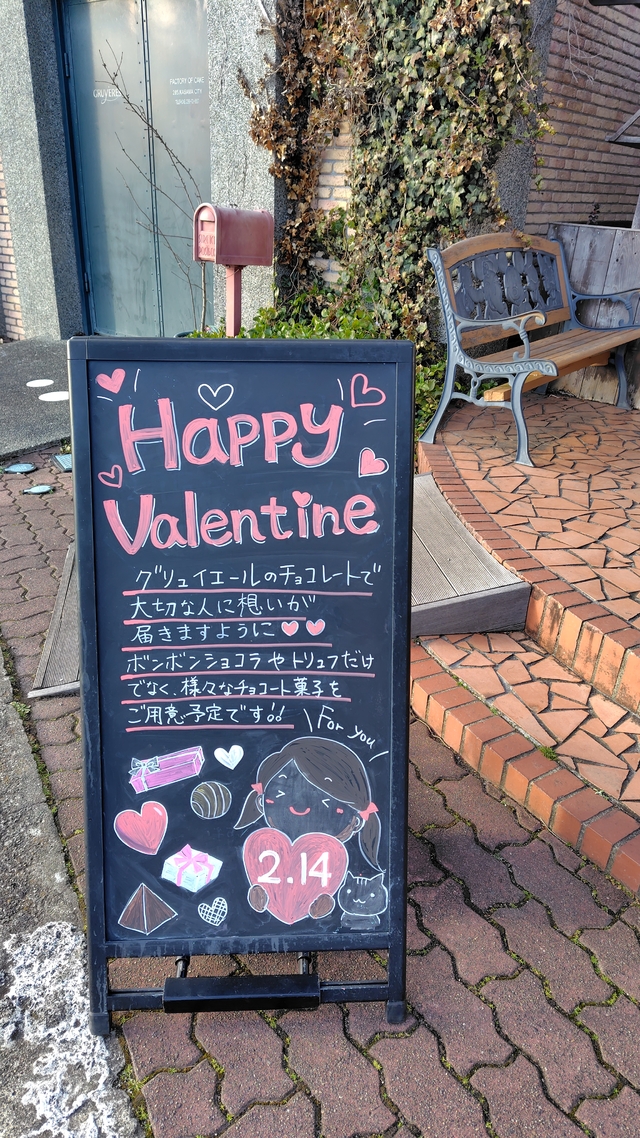 GRUYERES
FACTORY OF CAKE
Happy
Valentine
グリュイエールのチョコレートで
大切な人に想いが
届きますように
ボンボンショコラやトリュフだけ
でなく、様々なチョコート菓子を
ご用意予定です!!
For you
2.14